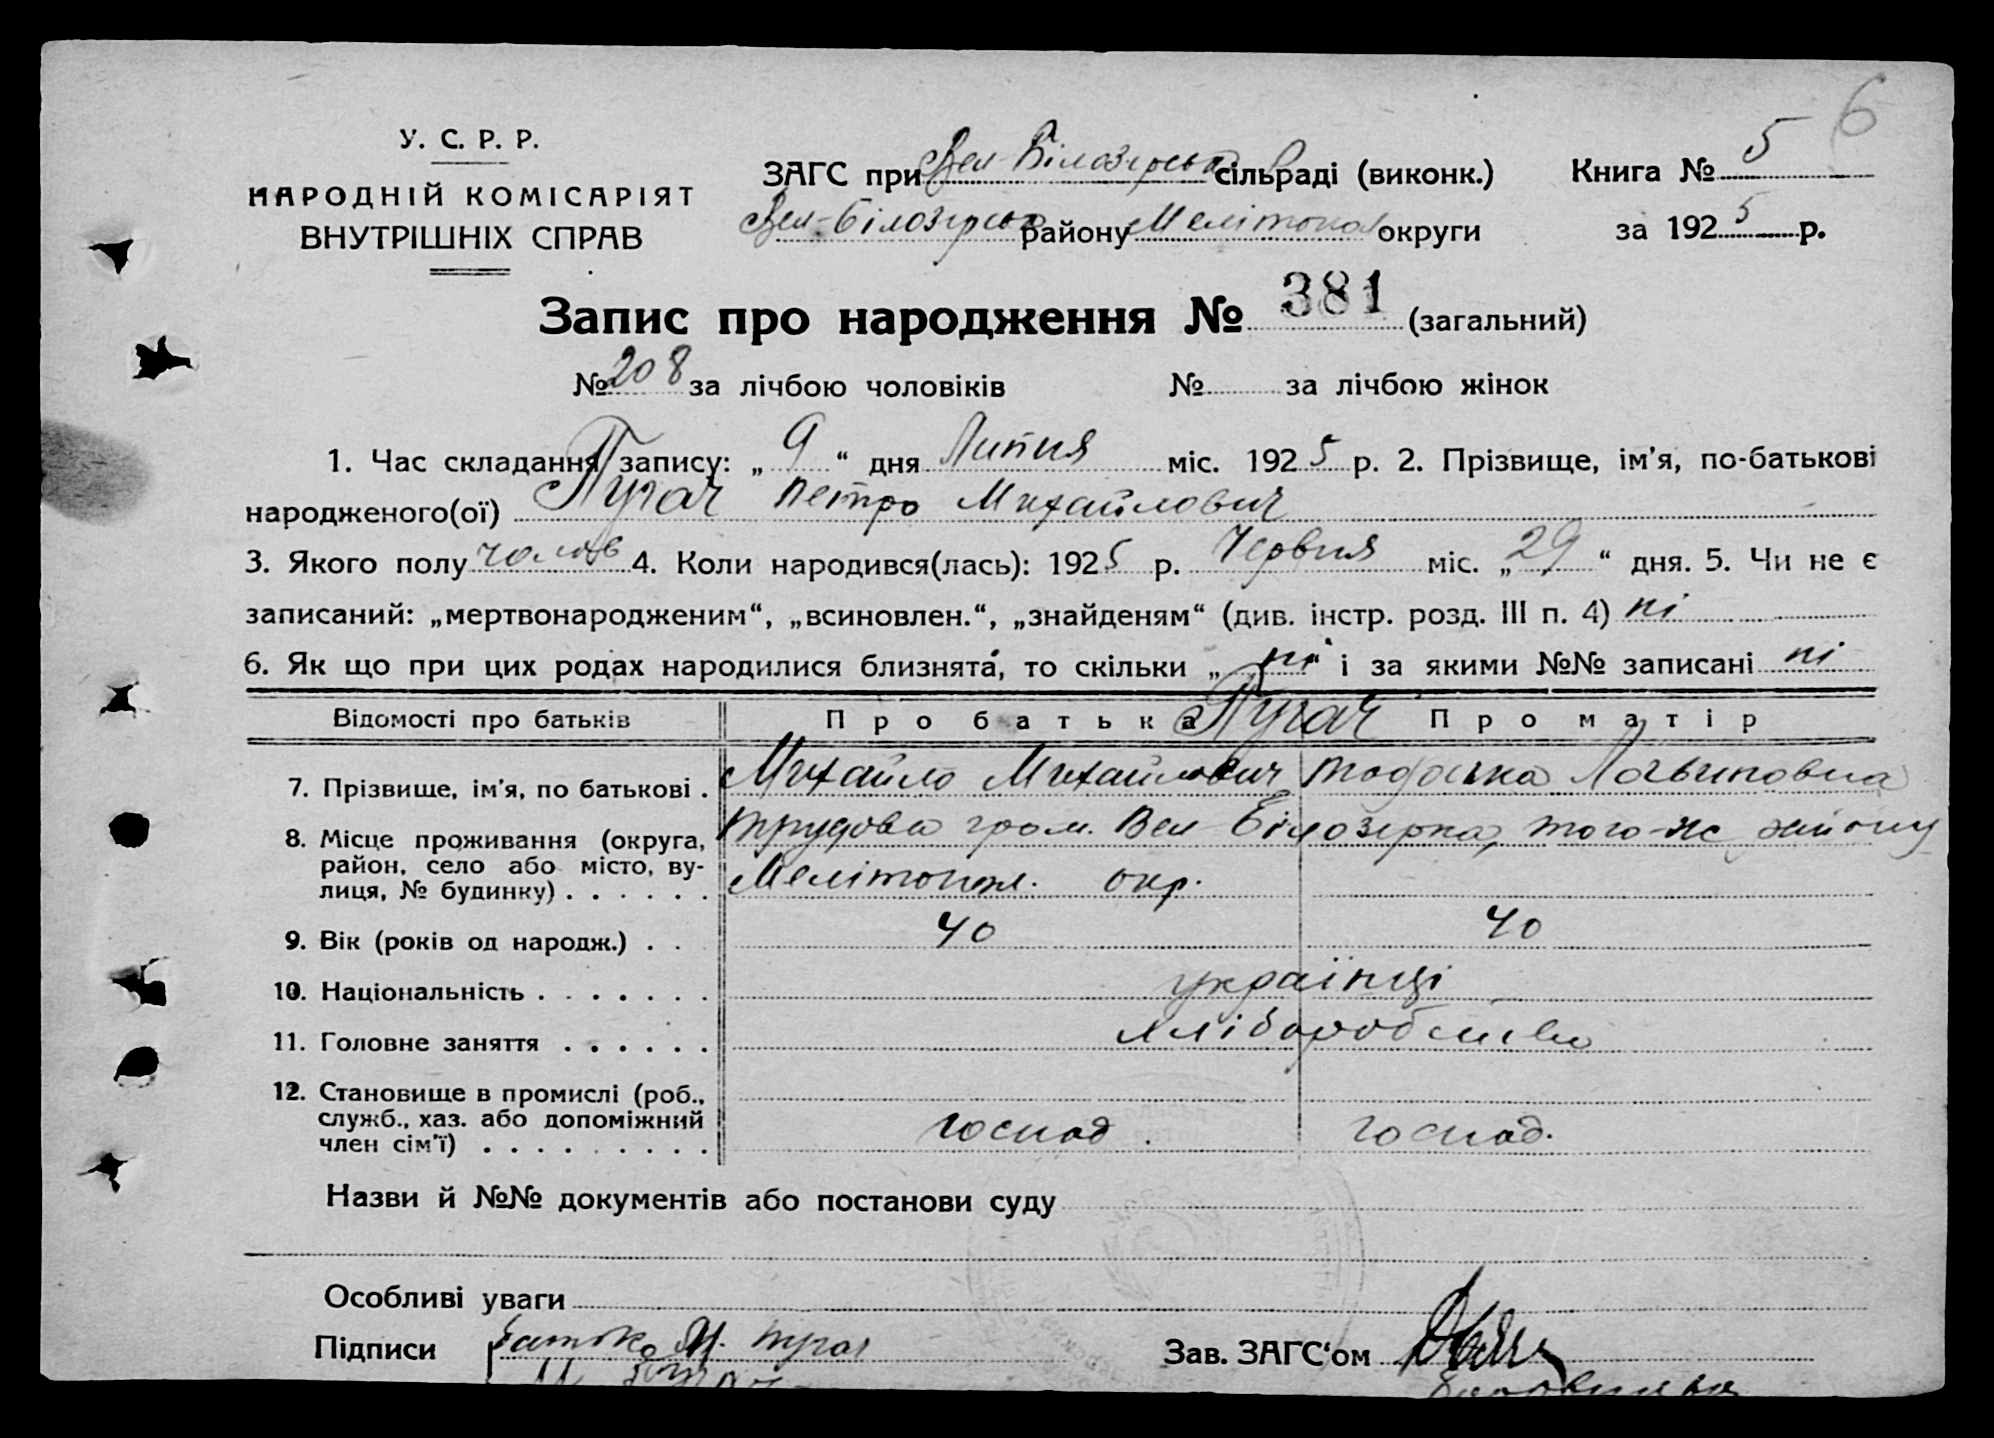 6
У. С. Р. Р.
НАРОДНІЙ КОМІСАРІЯТ
ВНУТРІШНІХ СПРАВ
ЗАГС при Вел-Білозірська сільраді (виконк.) Книга № 5
Вел-Білозірсько району Мелітопол округи за 1925 р.
Запис про народження № 381 (загальний)
№ 208 за лічбою чоловіків № за лічбою жінок
1. Час складання запису: „ 9 “ дня Липня міс. 1925 р. 2. Прізвище, ім’я, по-батькові
народженого(ої) Пугач Петро Михайлович
3. Якого полу чолов 4. Коли народився(лась): 1925 р. Червня міс. „ 29 “ дня. 5. Чи не є
записаний: „мертвонародженим“, „всиновлен.“, „знайденям“ (див. інстр. розд. III п. 4) ні
6. Як що при цих родах народилися близнята, то скільки „ ні “ і за якими №№ записані ні
Відомості про батьків Про батька Пугач Про матір
7. Прізвище, ім’я, по батькові . Михайло Михайлович Тодоська Логвиновна
8. Місце проживання (округа, район, село або місто, вулиця, № будинку) . . . . . . Трудова гром. Вел Білозірка, того-ж району
Мелітопол. окр.
9. Вік (років од народж.) . . 40 40
10. Національність . . . . . . . українці
11. Головне заняття . . . . . . хліборобство
12. Становище в промислі (роб.,
служб., хаз. або допоміжний
член сім’ї) . . . . . . . . . господ. господ.
Назви й №№ документів або постанови суду
Особливі уваги
Підписи батько М. Пугач Зав. ЗАГС‘ом